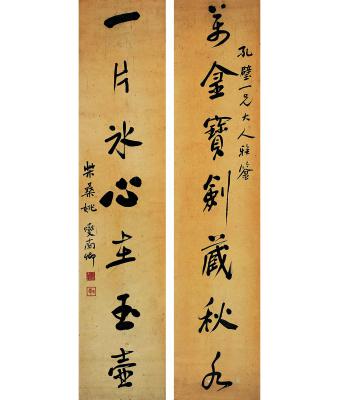 萬金寶劍藏秋水
孔璧一兄大人雅鑒
一片冰心在玉壺
柴桑姚